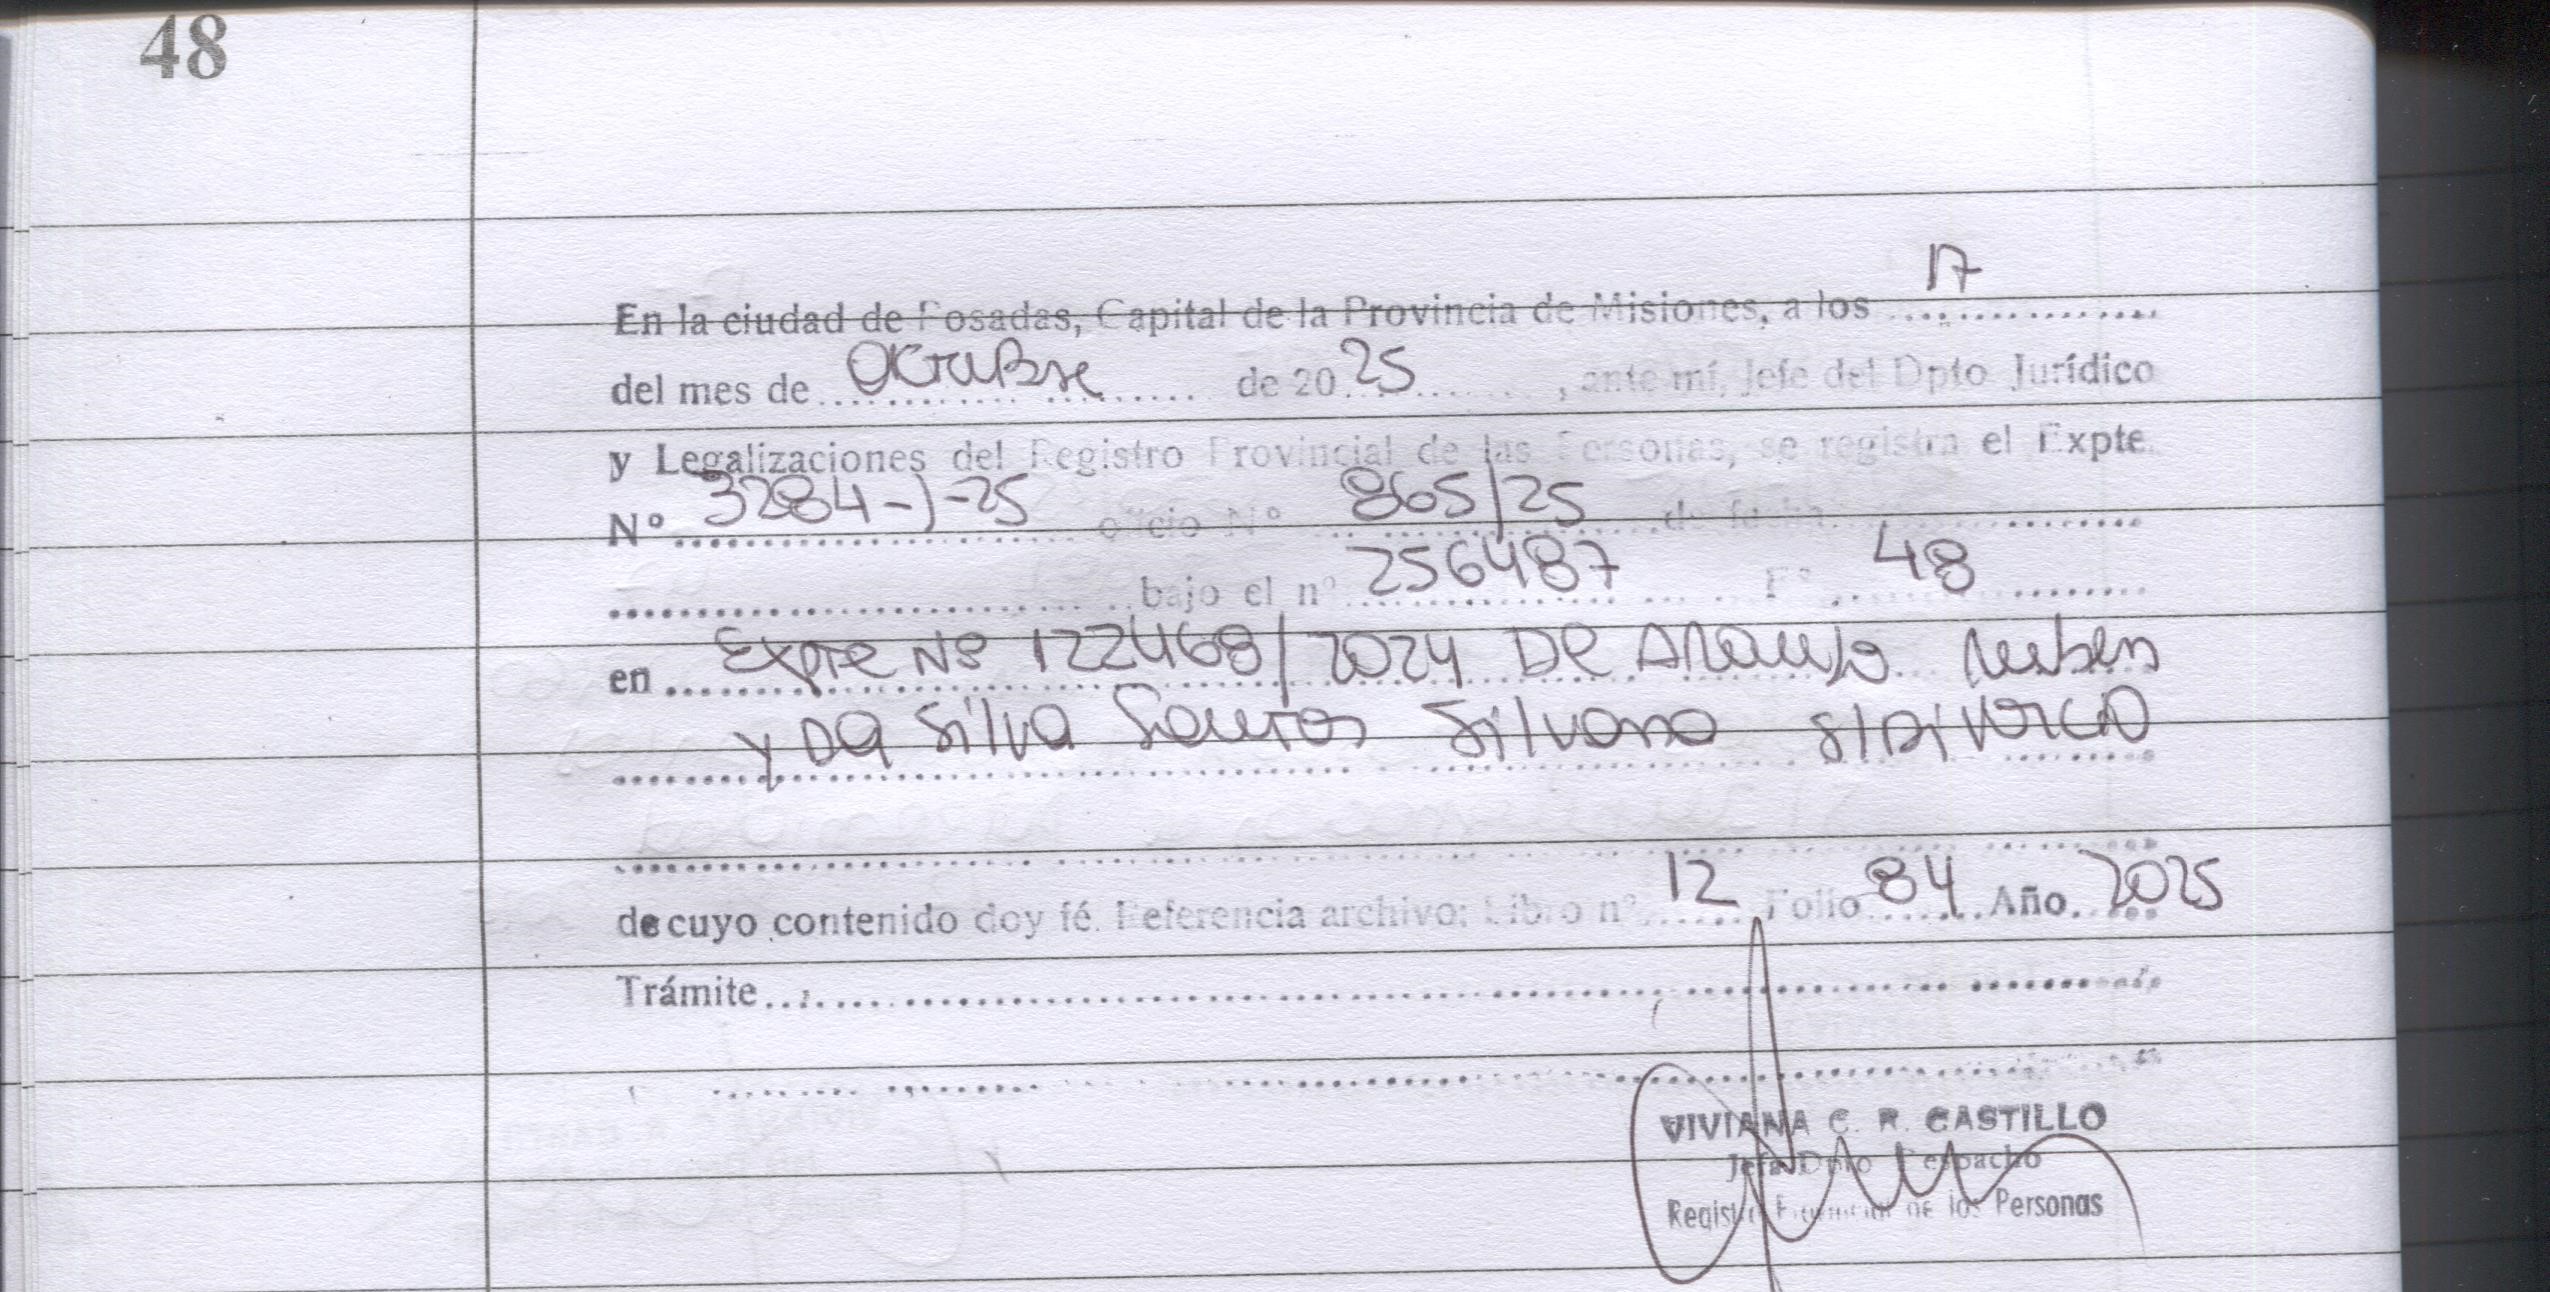 48
En la ciudad de Posadas, Capital de la Provincia de Misiones, a los 17
del mes de Octubre de 2025, ante mí, Jefe del Dpto Jurídico
y Legalizaciones del Registro Provincial de las Personas, se registra el Expte.
Nº 3284-J-25 oficio Nº 865/25 de fecha
bajo el nº 256487 Fº 48
en Expte Nº 122468/2024 De Araujo Ruben
y Da Silva Santos Silvana s/Divorcio
de cuyo contenido doy fé. Referencia archivo: Libro nº 12 Folio 84 Año 2025
Trámite
VIVIANA C. R. CASTILLO
Jefa Dpto Despacho
Registro Provincial de las Personas